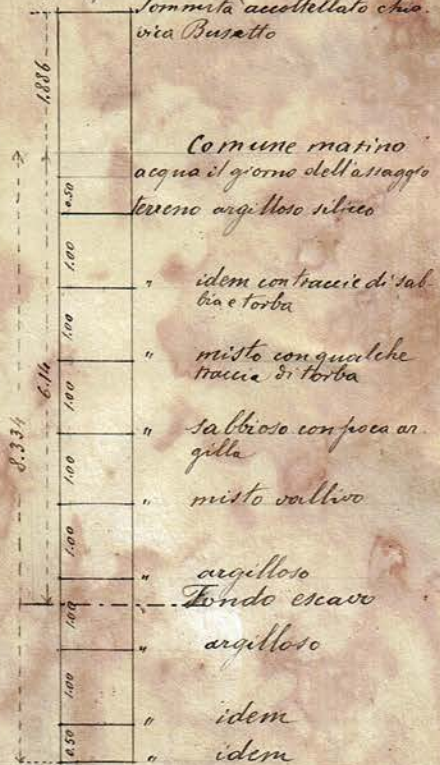 Sommità accoltellato chia-
vica Busetto
1.886
Comune marino
acqua il giorno dell'assaggio
0.50
terreno argilloso siliceo
1.00
" idem con traccie di sab-
bia e torba
1.00
" misto con qualche
traccia di torba
6.14
1.00
8.334
" sabbioso con poca ar-
gilla
1.00
" misto vallivo
1.00
" argilloso
Fondo escavo
1.00
" argilloso
1.00
" idem
0.50
" idem